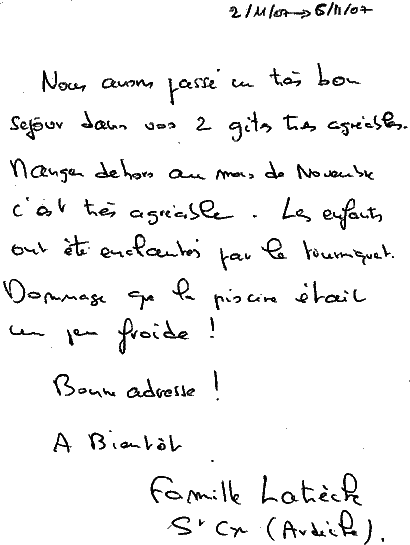 2/11/07 → 6/11/07
Nous avons passé un très bon
séjour dans vos 2 gites très agréables.
Manger dehors au mois de Novembre
c'est très agréable. Les enfants
ont été enchantés par le tourniquet.
Dommage que la piscine était
un peu froide !
Bonne adresse !
A Bientôt
Famille
St (Ardèche).